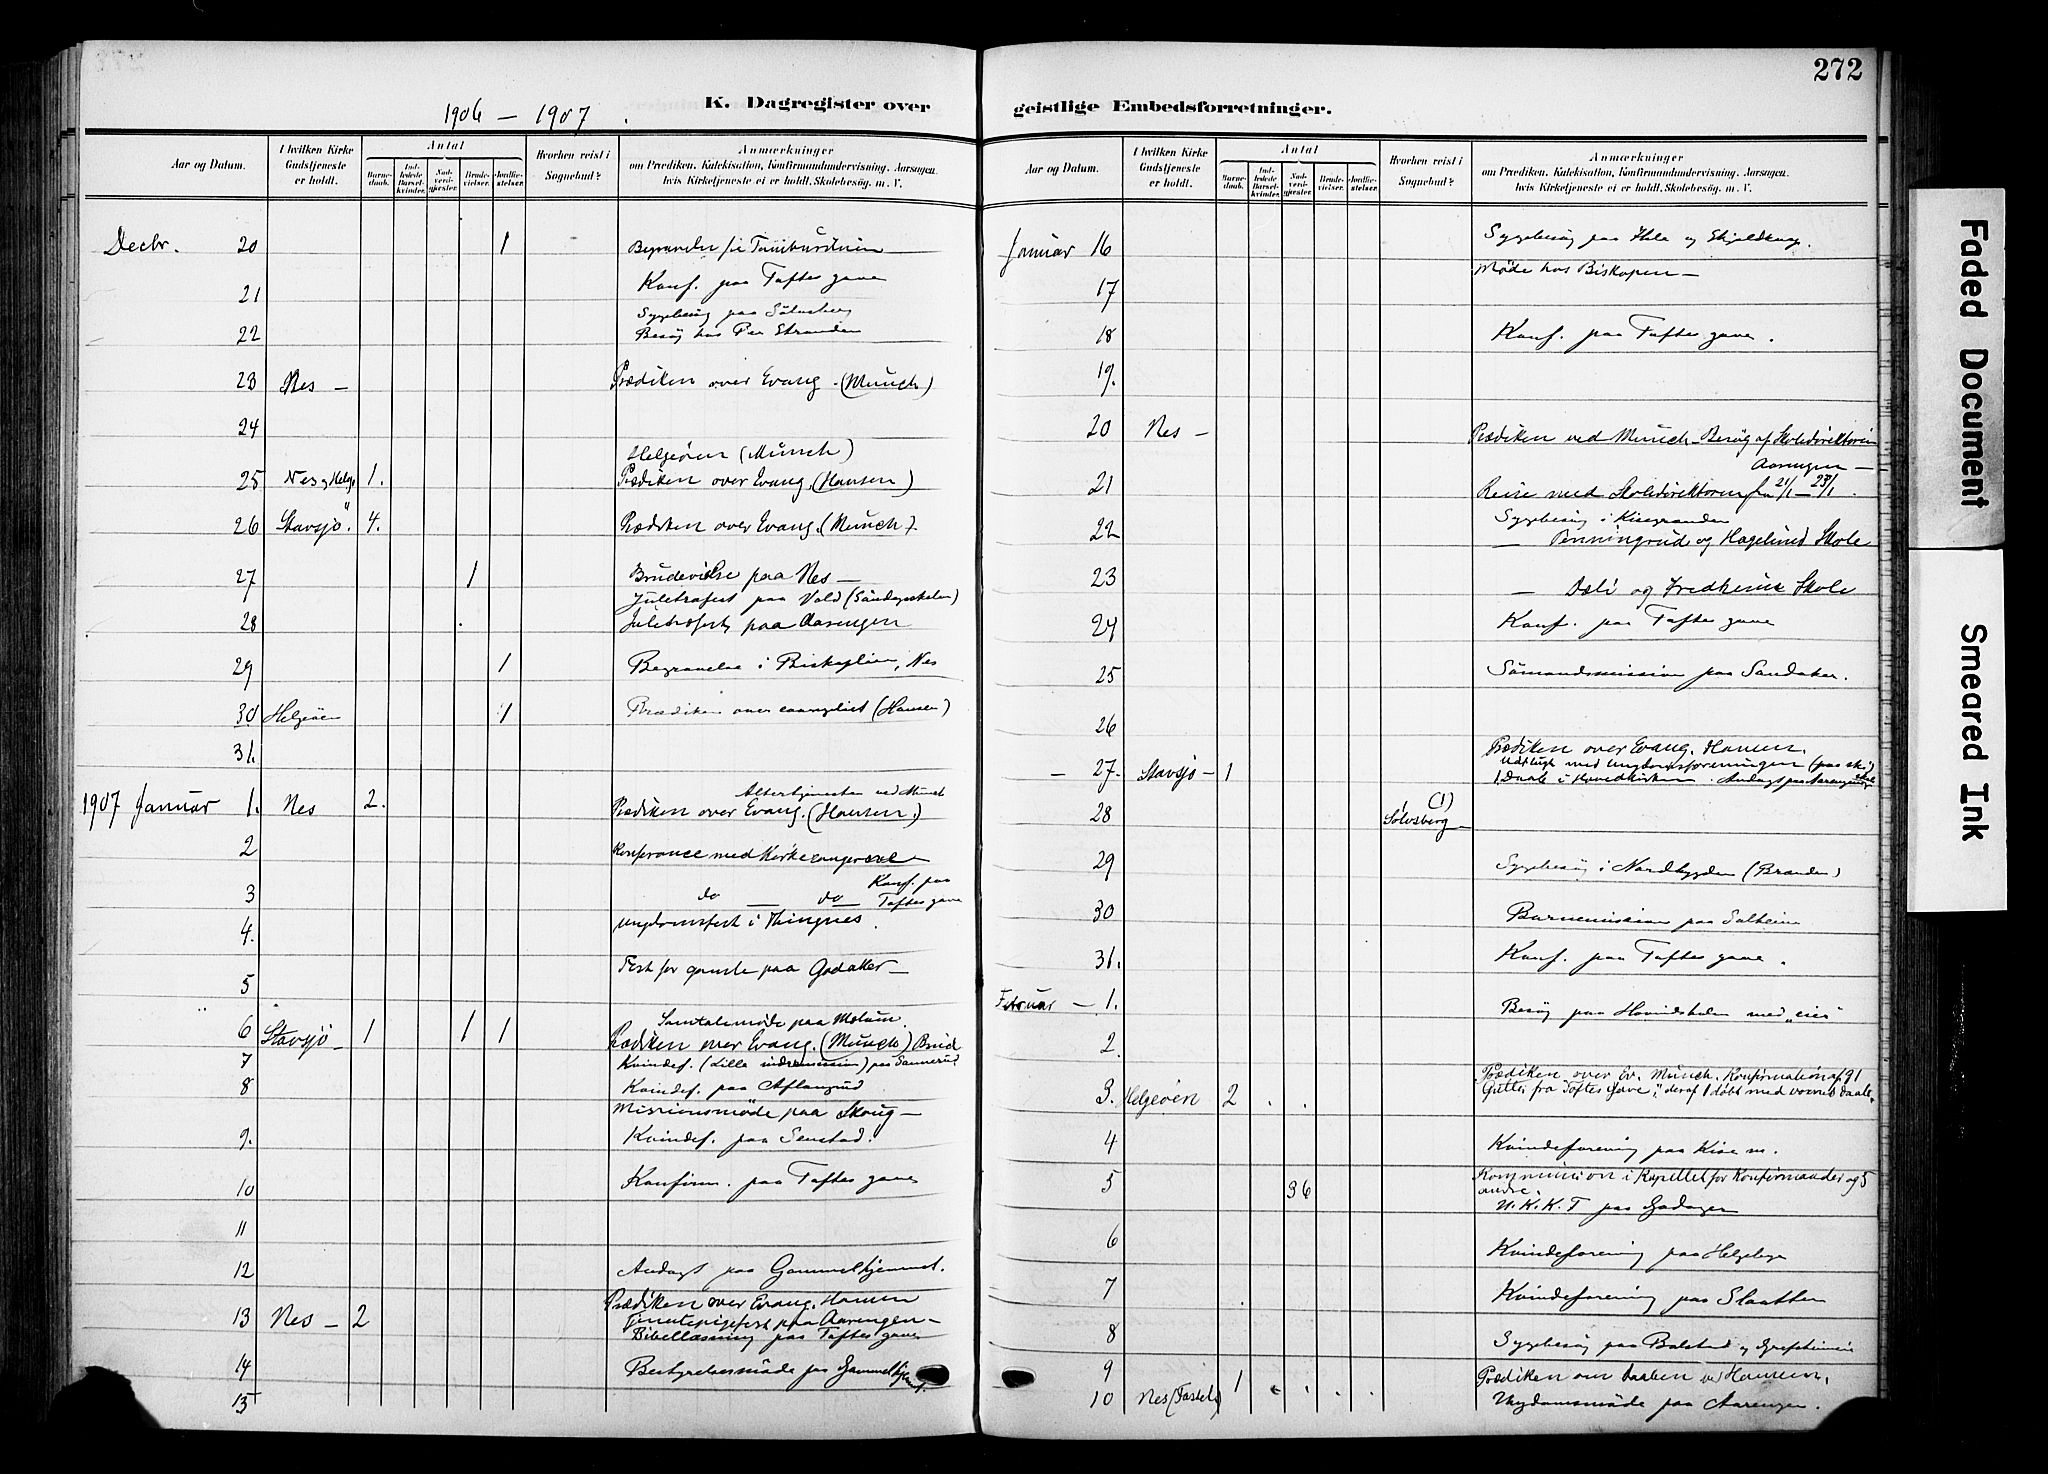 272
1906 – 1907.
K. Dagregister over
Aar og Datum.
I hvilken Kirke Gudstjeneste er holdt.
Antal
Barne-daab.
Ind-ledede Barsel-kvinder.
Nad-verd-gjester.
Brude-vielser.
Jordfæ-stelser.
Hvorhen reist i Sognebud?
Anmærkninger
om Prædiken, Katekisation, Konfirmandundervisning, Aarsagen, hvis Kirketjeneste ei er holdt, Skolebesøg, m. V.
Decbr. 20 1
Konf. paa Toftes gave
21
Sygebesøg paa Sølvsberg
22 Besøg hos Per Stranden
23 Nes – Prædiken over Evang. (Munch)
24
Helgeøen (Munch)
25 Nes og Helgø 1. Prædiken over Evang. (Hansen)
26 Stavsjø 4. Prædiken over Evang. (Munch).
27 1 Brudevielse paa Nes –
Juletræfest paa Vold (Søndagsskolen)
28 Juletræfest paa Aarengen
29 1 Begravelse i Biskoplien, Nes
30 Helgøen 1 Prædiken over evangeliet (Hansen)
31.
Altertjenesten ved Munch
1907 Januar 1. Nes 2. Prædiken over Evang. (Hansen.)
2 Konferance med Kirkesangerne
3 do — do Konf. paa Toftes gave
4. Ungdomsfest i Thingnes.
5 Fest for gamle paa Godaker –
Samtalemøde paa Mælum.
6 Stavsjø – 1 1 1 Prædiken over Evang. (Munch) Brud
7 Kvindef. (Lille indremission) paa Sannerud
8 Kvindef. paa Aflangrud
Missionsmøde paa Skoug –
9. Kvindef. paa Senstad.
10 Konfirm. paa Toftes gave
11
12 Andagt paa Gammelhjemmet.
13 Nes – 2 Prædiken over Evang. Hansen
Jentepigefest paa Aarengen –
Bibellæsning paa Toftes gave
14 Bestyrelsesmøde paa Gammelhjemmet.
15
geistlige Embedsforretninger.
Aar og Datum.
I hvilken Kirke Gudstjeneste er holdt.
Antal
Barne-daab.
Ind-ledede Barsel-kvinder.
Nad-verd-gjester.
Brude-vielser.
Jordfæ-stelser.
Hvorhen reist i Sognebud?
Anmærkninger
om Prædiken, Katekisation, Konfirmandundervisning, Aarsagen, hvis Kirketjeneste ei er holdt, Skolebesøg, m. V.
Januar 16 Sygebesøg paa Hela og Skjelskaap.
Møde hos Biskopen –
17
18 Konf. paa Toftes gave.
19.
20 Nes – Prædiken ved Munch – Besøg af Skoledirektøren
Aarengen –
21 Reise med Skoledirektøren fra 21/1 – 23/1.
Sygebesøg i Kisegranden
22 – Penningrud og Hagelund Skole
23 – Dæli og Fredheim Skole
24 Konf. paa Toftes gave
25 Sømandsmission paa Sandaker.
26
Prædiken over Evang. Hansen.
– 27. Stavsjø – 1 Udflugt med Ungdomsforeningen (paa ski)
1 Daab i Hovedkirken. Andagt paa Aarengen
28 1 (1) Sølvsberg –
29 Sygebesøg i Nordbygden (Branden)
30 Barnemission paa Solheim
31. Konf. paa Toftes gave.
Februar – 1. Besøg paa
2.
Prædiken over Ev. Munch. Konfirmation af 31
3. Helgeøen 2 Gutter fra Toftes Gave, deraf 1 døbt med voxnes Daab.
4 Kvindeforening paa Kise m.
5 36 Kommunion i Kapellet for Konfirmander og 5 andre.
U.K.K.T paa
6 Kvindeforening paa Helgelege
7 Kvindeforening paa Slaatten
8 Sygebesøg paa Balstad og
9
Prædiken om Daaben ved Hansen.
10 Nes (Fastel.) 1 Ungdomsmøde paa Aarengen.
Faded Document
Smeared Ink